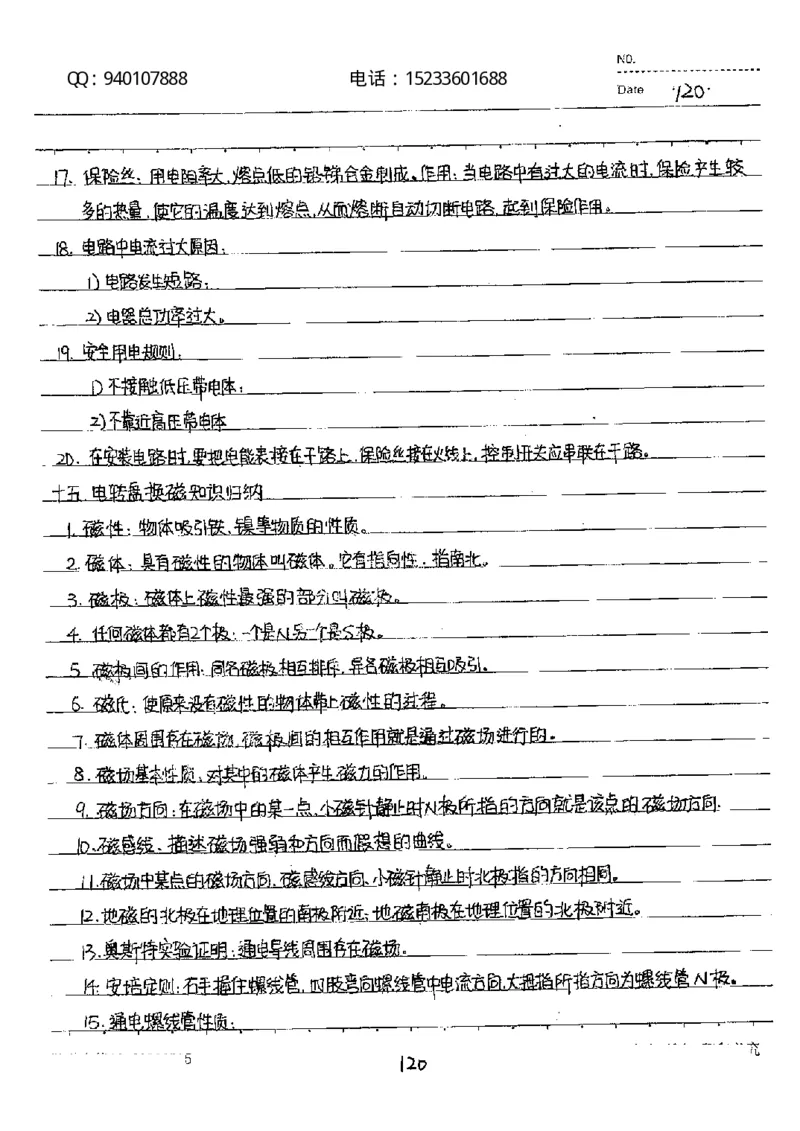 NO.
QQ：940107888 电话：15233601688
Date 120
17. 保险丝：用电阻率大，熔点低的铅锑合金制成。作用：当电路中有过大的电流时，保险产生较
多的热量，使它的温度达到熔点，从而熔断自动切断电路，起到保险作用。
18. 电路中电流过大原因：
1) 电路发生短路；
2) 电器总功率过大。
19. 安全用电规则：
1) 不接触低压带电体；
2) 不靠近高压带电体
20. 在安装电路时，要把电能表接在干路上，保险丝接在火线上，控制开关应串联在干路。
十五. 电转盘换磁知识归纳
1. 磁性：物体吸引铁，镍等物质的性质。
2. 磁体：具有磁性的物体叫磁体。它有指向性：指南北。
3. 磁极：磁体上磁性最强的部分叫磁极。
4. 任何磁体都有2个极：一个是N另一个是S极。
5. 磁极间的作用：同名磁极相互排斥，异名磁极相互吸引。
6. 磁化：使原来没有磁性的物体带上磁性的过程。
7. 磁体周围存在磁场，磁极间的相互作用就是通过磁场进行的。
8. 磁场基本性质，对其中的磁体产生磁力的作用。
9. 磁场方向：在磁场中的某一点，小磁针静止时N极所指的方向就是该点的磁场方向.
10. 磁感线、描述磁场强弱和方向而假想的曲线。
11. 磁场中某点的磁场方向，磁感线方向，小磁针静止时北极指的方向相同。
12. 地磁的北极在地理位置的南极附近；地磁南极在地理位置的北极附近。
13. 奥斯特实验证明：通电导线周围存在磁场.
14. 安培定则：右手握住螺线管，四肢弯向螺线管中电流方向，大拇指所指方向为螺线管N极。
15. 通电螺线管性质：
5
充
120